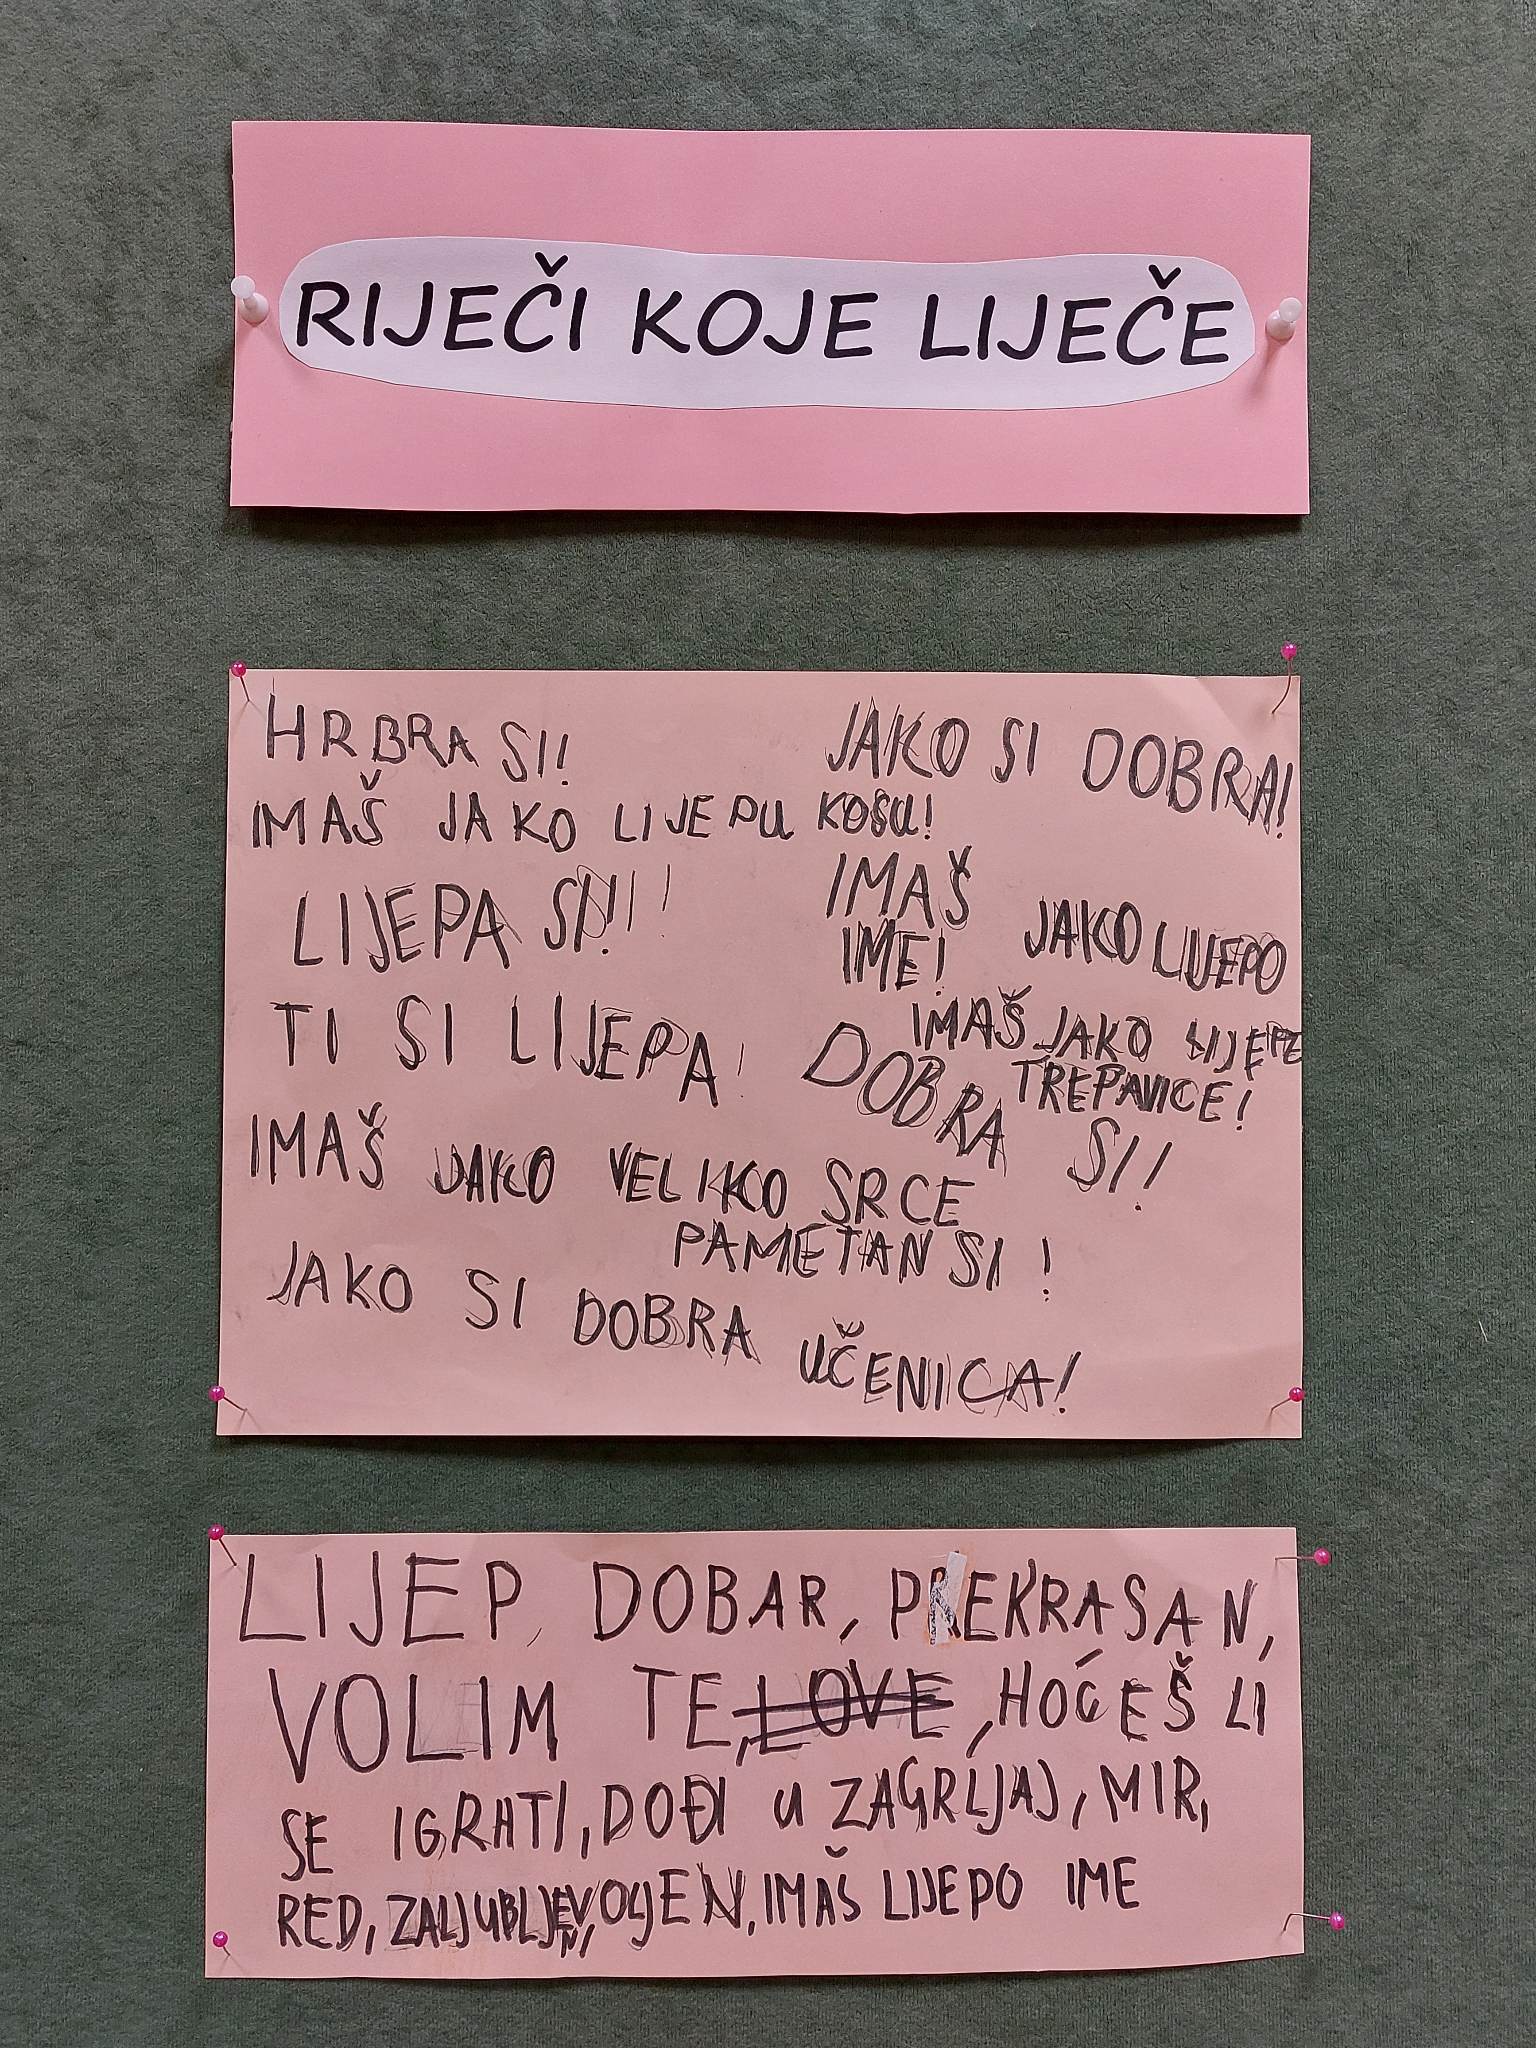 RIJEČI KOJE LIJEČE
HRBRA SI!
JAKO SI DOBRA!
IMAŠ JAKO LIJEPU KOSU!
LIJEPA SI!!!
IMAŠ JAKO LIJEPO
IME!
TI SI LIJEPA!
IMAŠ JAKO LIJEPE
TREPAVICE!
DOBRA SI!
IMAŠ JAKO VELIKO SRCE
PAMETAN SI!
JAKO SI DOBRA UČENICA!
LIJEP, DOBAR, PREKRASAN,
VOLIM TE, LOVE, HOĆEŠ LI
SE IGRATI, DOĐI U ZAGRLJAJ, MIR,
RED, ZALJUBLJEN, VOLJEN, IMAŠ LIJEPO IME